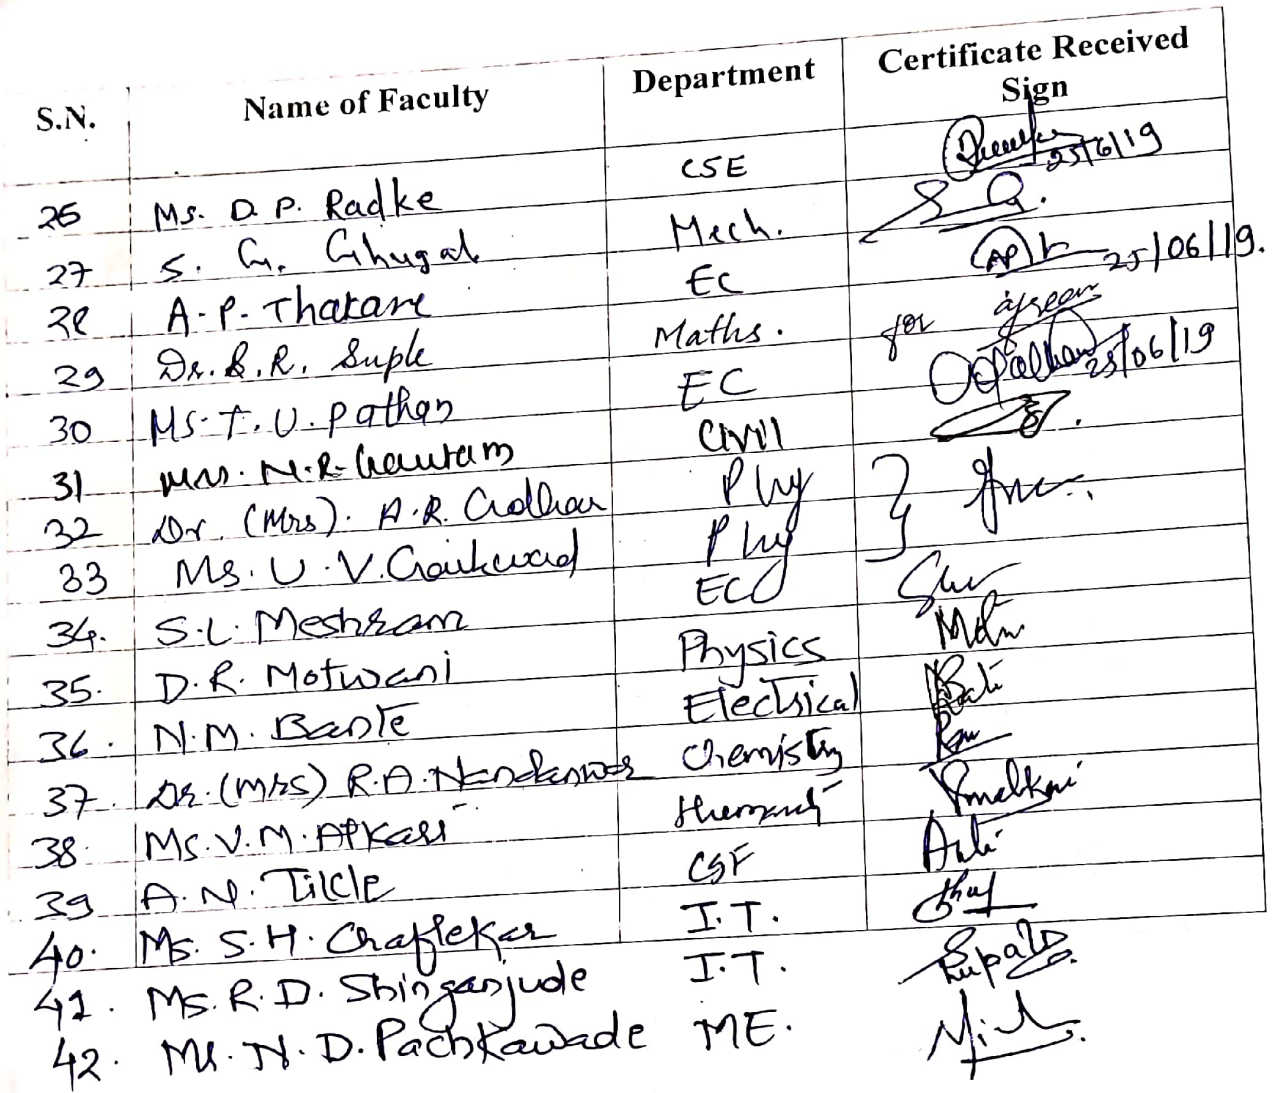 S.N. Name of Faculty Department Certificate Received Sign
26 Ms. D. P. Radke CSE 25/6/19
27 S. G. Ghugal Mech.
28 A. P. Thakare EC 25/06/19.
29 Dr. S. R. Suple Maths. for
30 Ms. T. U. Pathan EC 25/06/19
31 Mrs. N. R. Gautam Civil
32 Dr. (Mrs). A. R. Golhar Phy
33 Ms. U. V. Gaikwad Phy
34. S. L. Meshram EC
35. D. R. Motwani Physics
36. N. M. Bante Electrical
37. Dr. (Mrs) R. A. Nandanwar Chemistry
38. Ms. V. M. Apkari
39 A. N. Tikle CSE
40. Ms. S. H. Chaflekar I.T.
41. Ms. R. D. Shinganjude I.T. Rupali
42. Mr. N. D. Pachkawade ME.